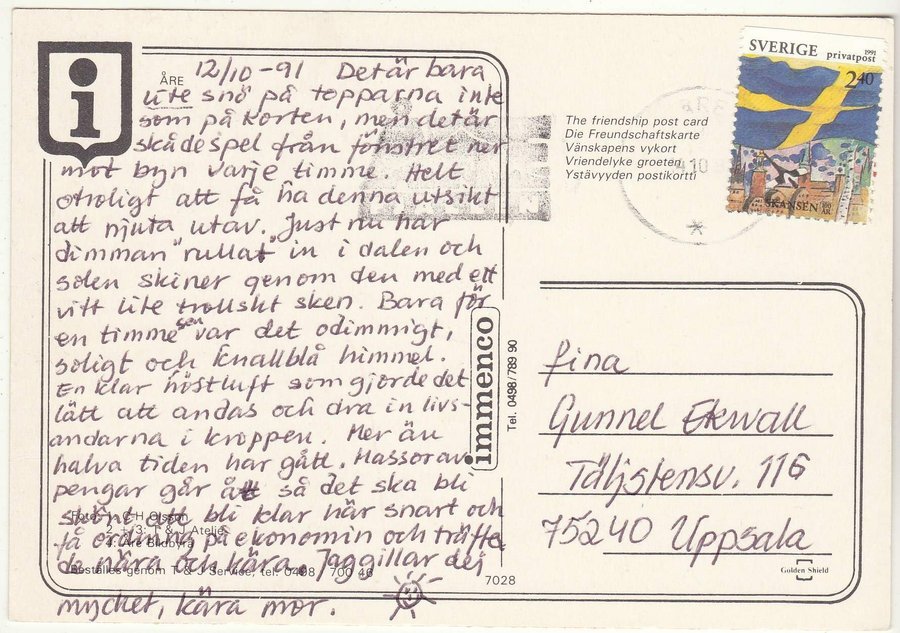 ÅRE 12/10-91 Det är bara
lite snö på topparna inte
som på korten, men det är
skådespel från fönstret ner
mot byn varje timme. Helt
otroligt att få ha denna utsikt
att njuta utav. Just nu har
dimman "rullat" in i dalen och
solen skiner genom den med ett
vitt lite trollskt sken. Bara för
en timme sen var det odimmigt,
soligt och knallblå himmel.
En klar höstluft som gjorde det
lätt att andas och dra in livs-
andarna i kroppen. Mer än
halva tiden har gått. Massor av
pengar går åt så det ska bli
skönt att bli klar här snart och
få ordning på ekonomin och träffa
de nära och kära. Jag gillar dej
mycket, kära mor.
Foto: H Olsson
+ 3: T & J Ateljé
4: Åre Bildbyrå
Beställes genom T & J Service, tel. 0498 - 700 46
7028
immenco
Tel. 0498/789 90
The friendship post card
Die Freundschaftskarte
Vänskapens vykort
Vriendelyke groeten
Ystävyyden postikortti
SVERIGE 1991
privatpost
2 40
SKANSEN 100 ÅR
fina
Gunnel Ekwall
Täljstensv. 116
75240 Uppsala
Golden Shield